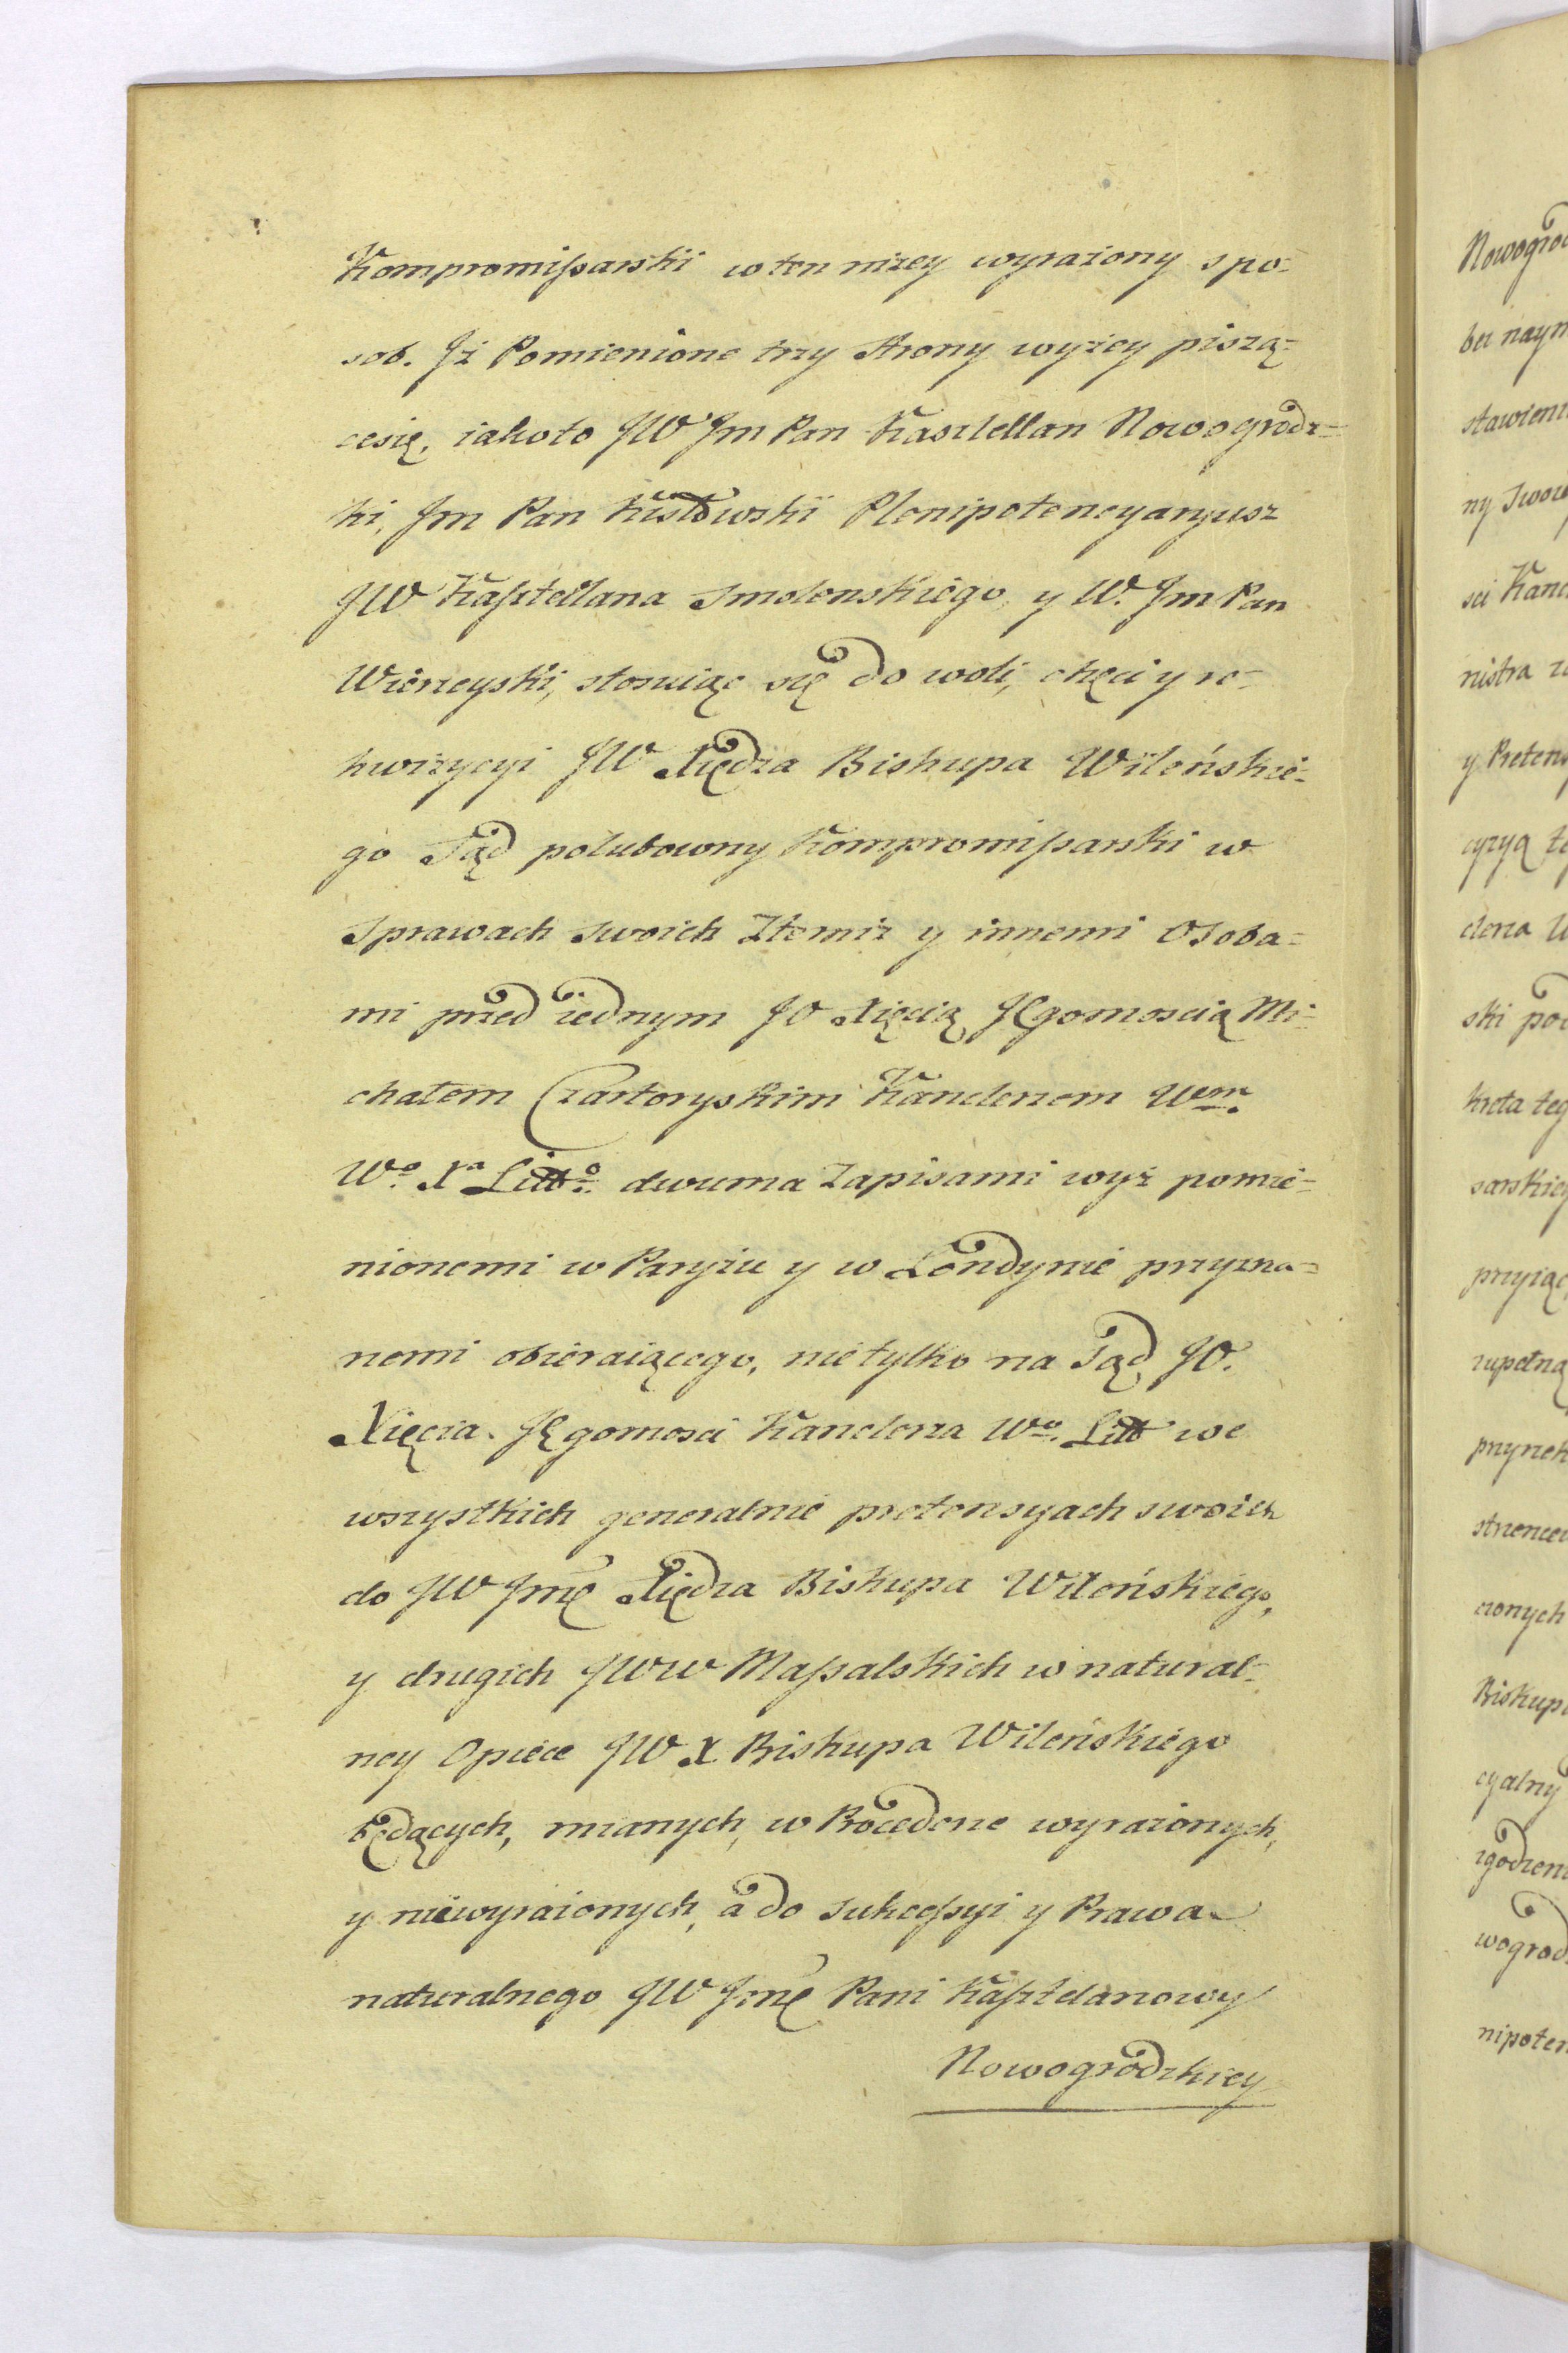 Kompromissarski w ten niżey wyrażony spo=
sob. Jż Pomienione trzy Strony wyżey piszą=
cesię, iakoto JW Jm Pan Kasztellan Nowogrodz=
ki, Jm Pan Kisłowski Plenipotencyaryusz
JW Kasztellana Smolenskiego, y W. Jm Pan
Wierzeyski, stosuiąc się do woli, chęci y re=
kwizycyi JW Xiędza Biskupa Wileńskie=
go Sąd polubowny Kompromissarski w
Sprawach Swoich Ztemiz y innemi Osoba=
mi przed iednym JO Xięcią Jęgomoscią Mi=
chałem Czartoryskim Kanclerzem Wem.
Wo. Xa Litto. dwuma Zapisami wyż pomie=
nionemi w Paryżu y w Londynie przyzna=
nemi obieraiącego, nietylko na Sąd JO.
Xięcia Jęgomosci Kanclerza Wo. Litt we
wszystkich generalnie pretensyach swoich
do JW Jmę Xiędza Biskupa Wileńskiego,
y drugich JWW Massalskich w natural=
ney Opiece JW X Biskupa Wileńskiego
będących, mianych, w Procederze wyrażonych,
y niewyrażonych, a do Sukcessyi y Prawa
naturalnego JW Jmę Pani Kasztelanowy
Nowogrodzkiey
Nowogrod
bei nayn
stawieni
ny Swoie
sci Kanc
nistra
y Pretens
cyzyą
clerza W
ski pod
kreta teg
sarskiey
przyiąć
zupełną
przyrzek
strzencei
czonych
Biskupa
cyalny
zgodzeni
wogrod
nipoten